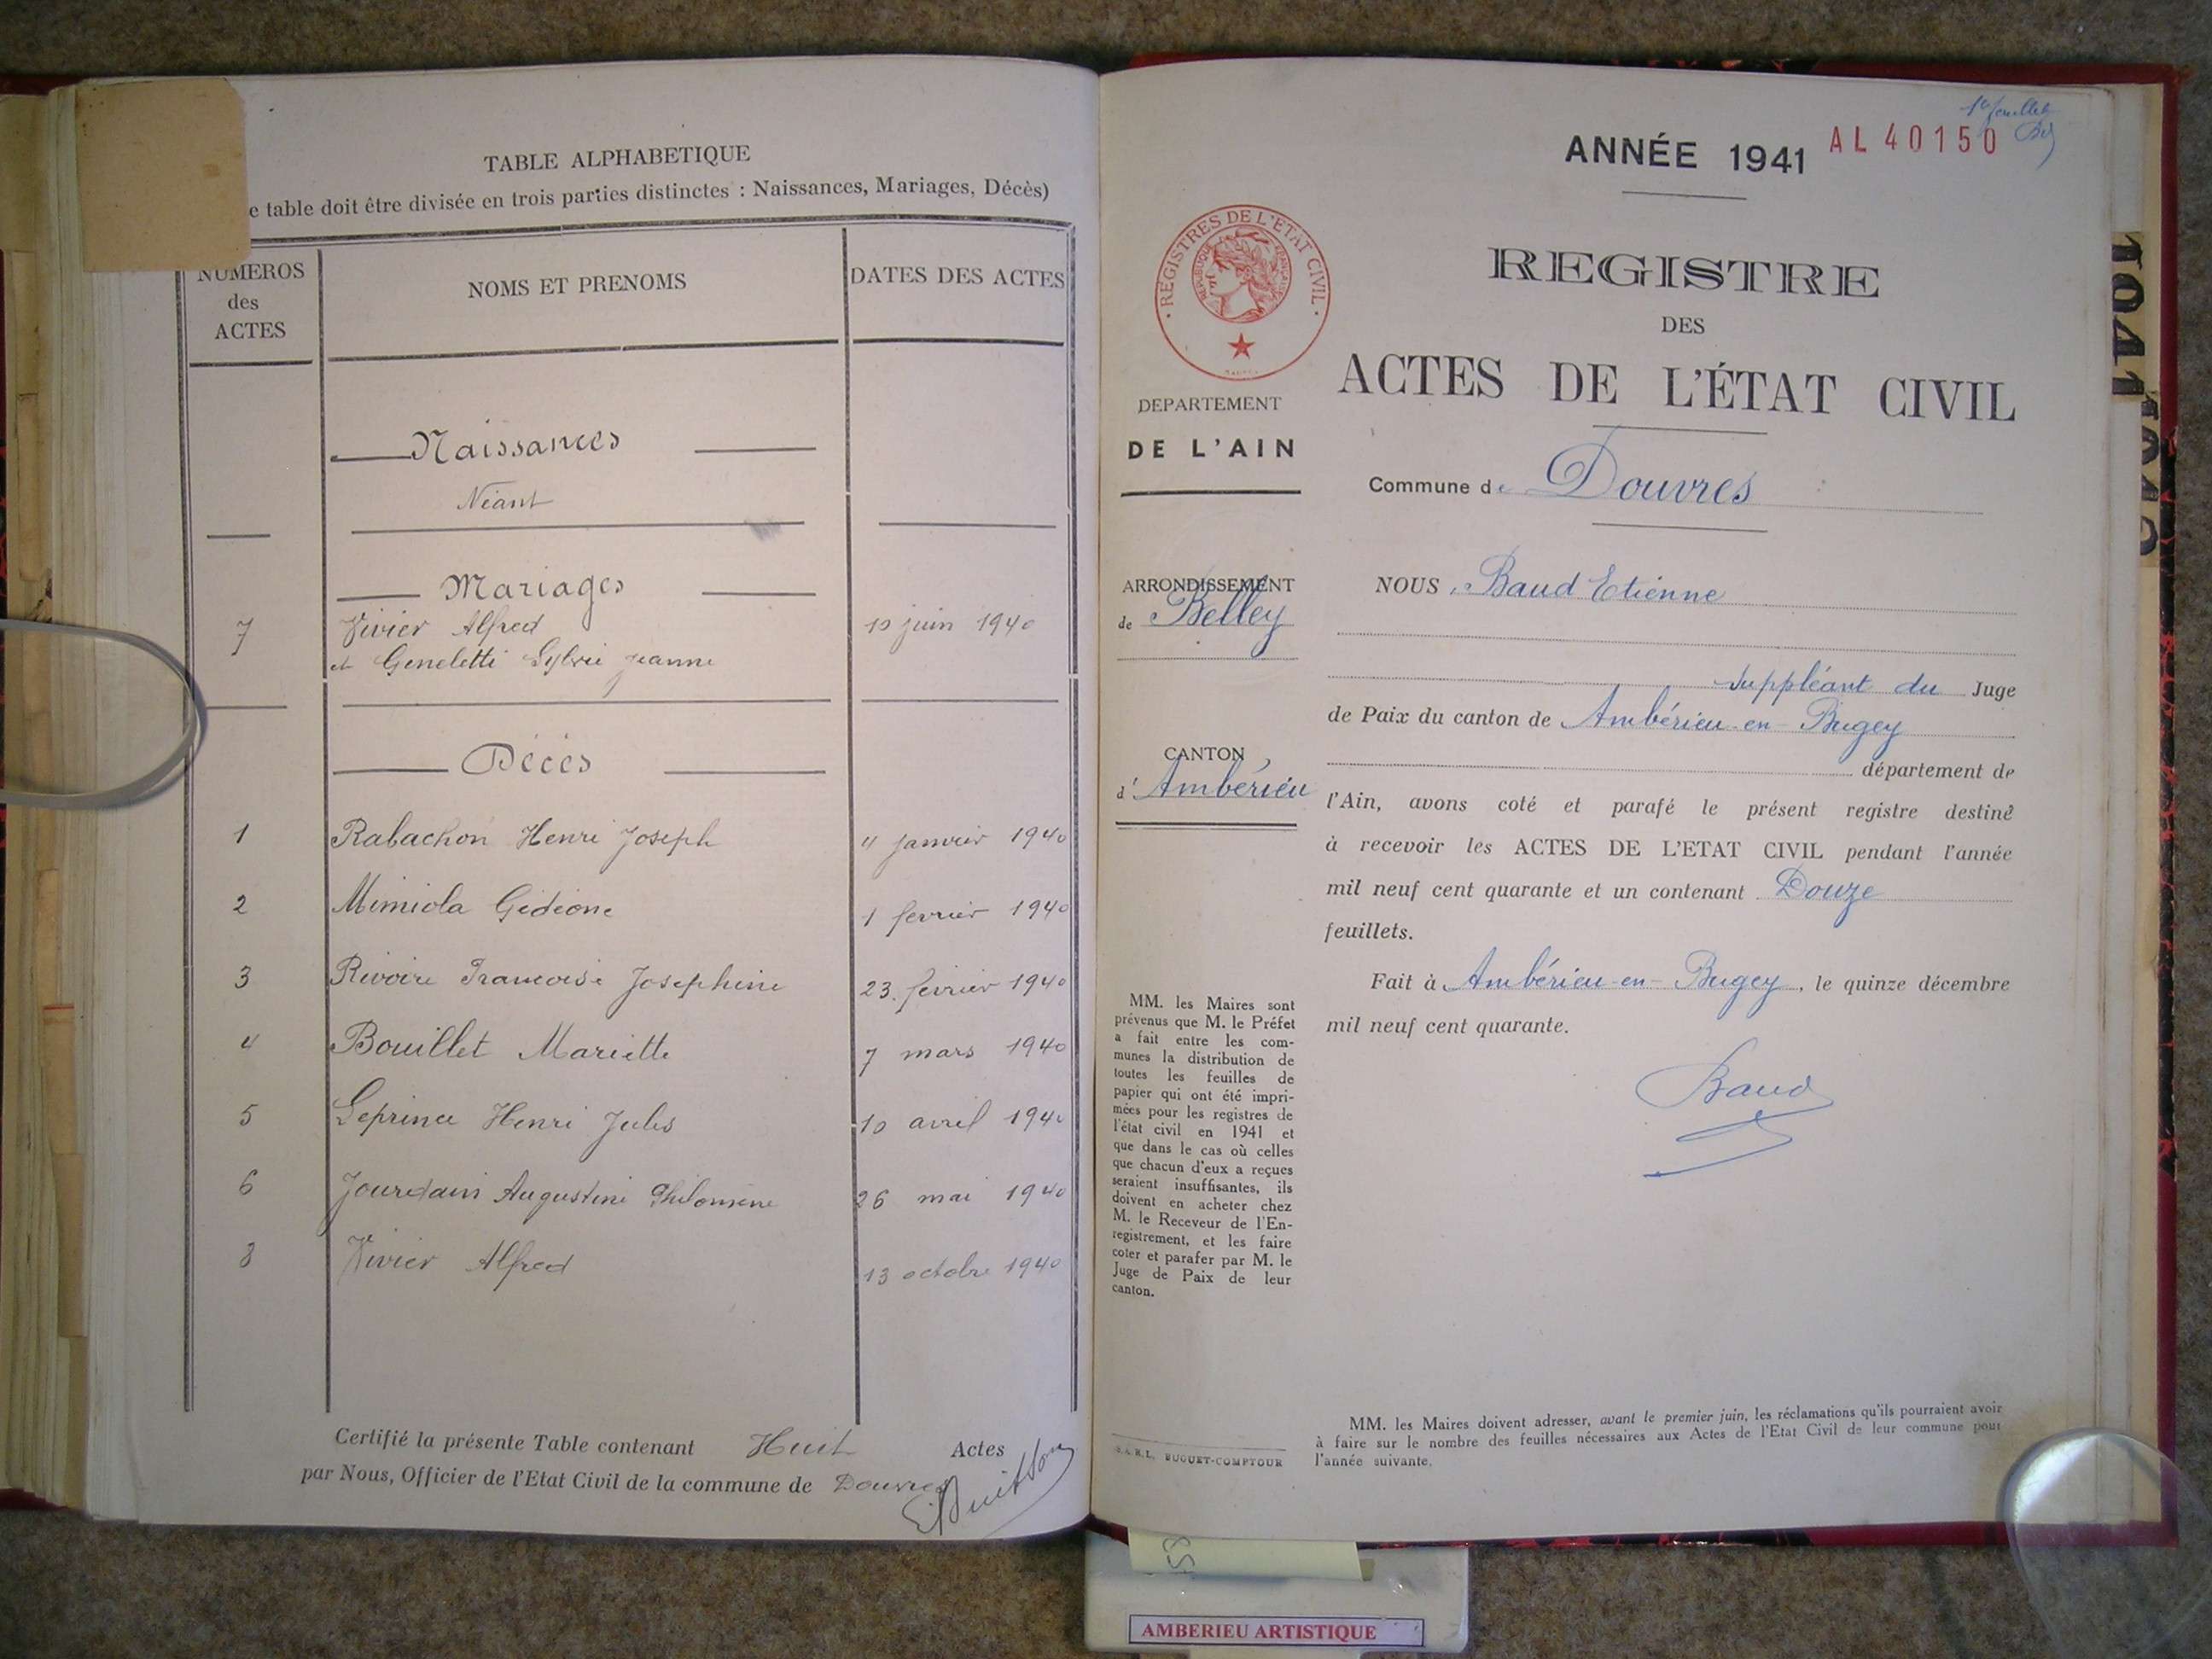 TABLE ALPHABETIQUE
e table doit être divisée en trois parties distinctes : Naissances, Mariages, Décès)
NUMEROS des ACTES
NOMS ET PRENOMS
DATES DES ACTES
Naissances
Néant
Mariages
7 Vivier Alfred 10 juin 1940
et Geneletti Sylvie Jeanne
Décès
1 Rabachon Henri Joseph 11 janvier 1940
2 Mimiola Gédéone 1 fevrier 1940
3 Rivoire Francoise Josephine 23 février 1940
4 Bouillet Mariette 7 mars 1940
5 Leprince Henri Jules 10 avril 1940
6 Jourdain Augustine Philomène 26 mai 1940
8 Vivier Alfred 13 octobre 1940
Certifié la présente Table contenant Huit Actes
par Nous, Officier de l'Etat Civil de la commune de Douvres
1er feuillet
ANNÉE 1941 AL 40150
REGISTRES DE L'ÉTAT CIVIL
REPUBLIQUE FRANÇAISE
REGISTRE
DES
ACTES DE L'ÉTAT CIVIL
DEPARTEMENT
DE L'AIN
Commune de Douvres
ARRONDISSEMENT
de Belley
CANTON
d'Ambérieu
NOUS, Baud Etienne
Suppléant du Juge
de Paix du canton de Ambérieu-en-Bugey
département de
l'Ain, avons coté et parafé le présent registre destiné
à recevoir les ACTES DE L'ETAT CIVIL pendant l'année
mil neuf cent quarante et un contenant Douze
feuillets.
Fait à Ambérieu-en-Bugey, le quinze décembre
mil neuf cent quarante.
Baud
MM. les Maires sont
prévenus que M. le Préfet
a fait entre les com-
munes la distribution de
toutes les feuilles de
papier qui ont été impri-
mées pour les registres de
l'état civil en 1941 et
que dans le cas où celles
que chacun d'eux a reçues
seraient insuffisantes, ils
doivent en acheter chez
M. le Receveur de l'En-
registrement, et les faire
coter et parafer par M. le
Juge de Paix de leur
canton.
S.A.R.L. BUGUET-COMPTOUR
MM. les Maires doivent adresser, avant le premier juin, les réclamations qu'ils pourraient avoir
à faire sur le nombre des feuilles nécessaires aux Actes de l'Etat Civil de leur commune pour
l'année suivante.
1941
AMBERIEU ARTISTIQUE